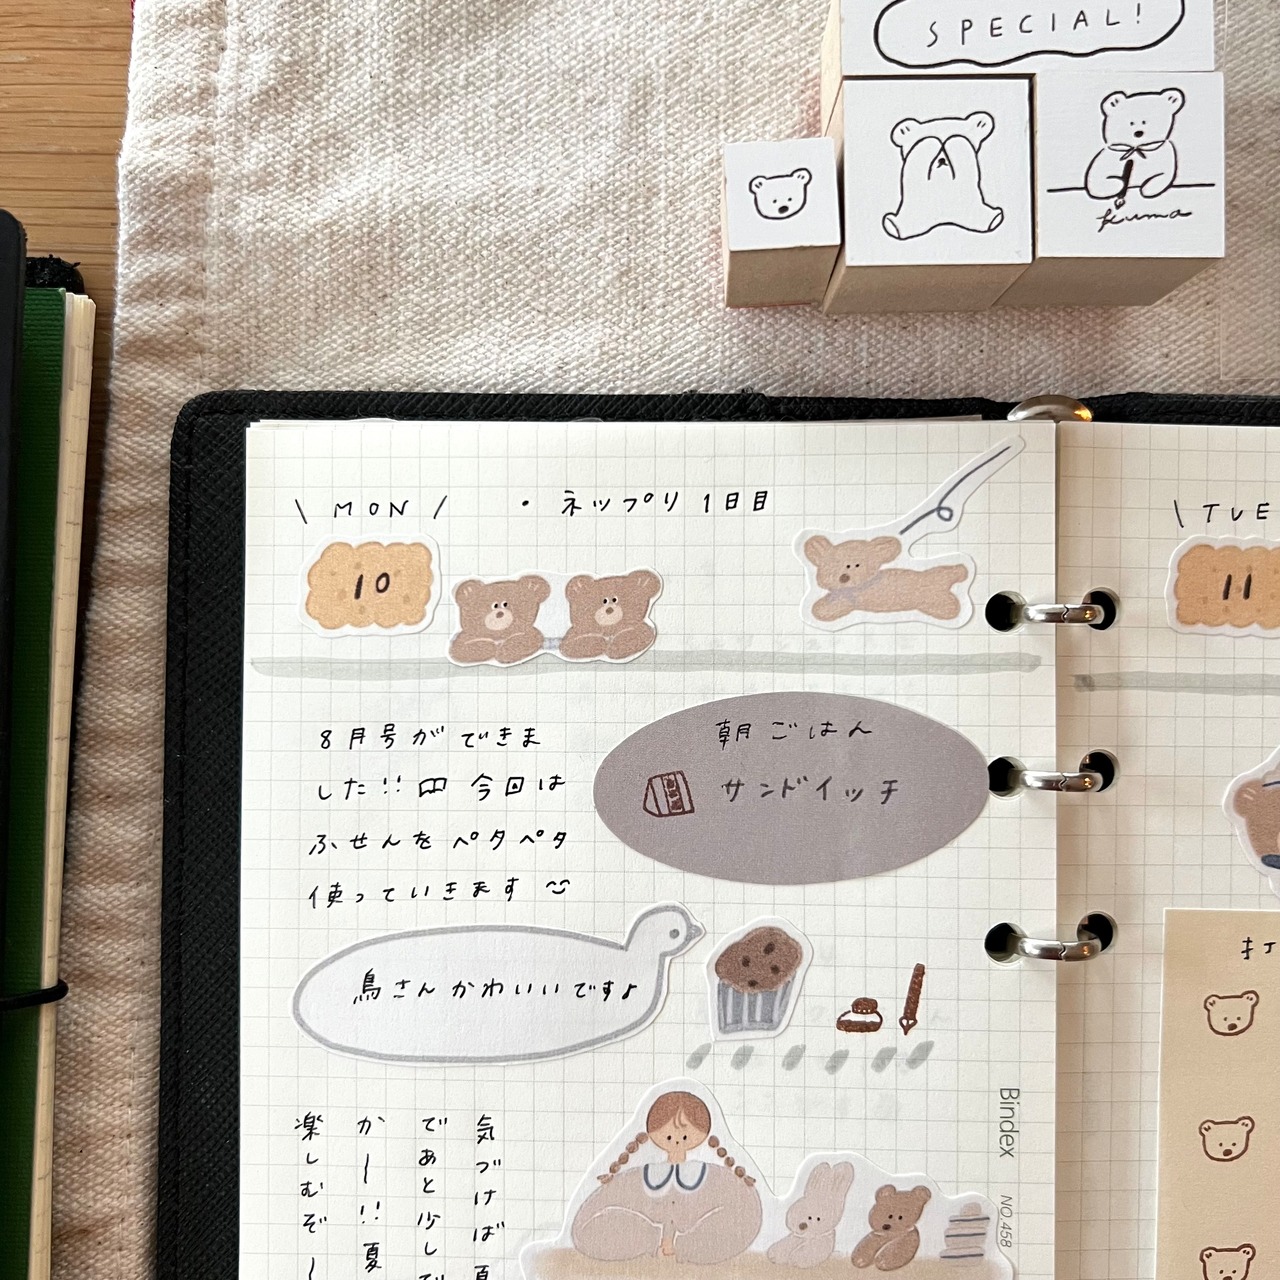 SPECIAL!
kuma
\ MON /
・ネップリ1日目
10
8月号ができま
した!! 今回は
ふせんをペタペタ
使っていきます
朝ごはん
サンドイッチ
鳥さんかわいいですよ
気づけば夏
であと少しで
かー!! 夏
楽しむぞー
Bindex NO.458
\ TUE
11
打